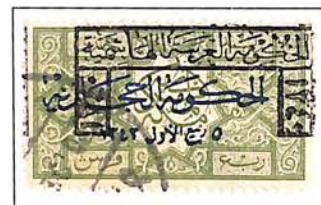 الحكومة العربية الهاشمية
الحكومة الحجازية
٥ ربيع الاول ١٣٤٣
ربع قرش